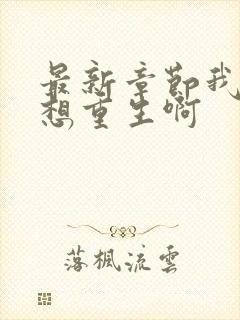 最新章節我
想重生啊
落楓流雲